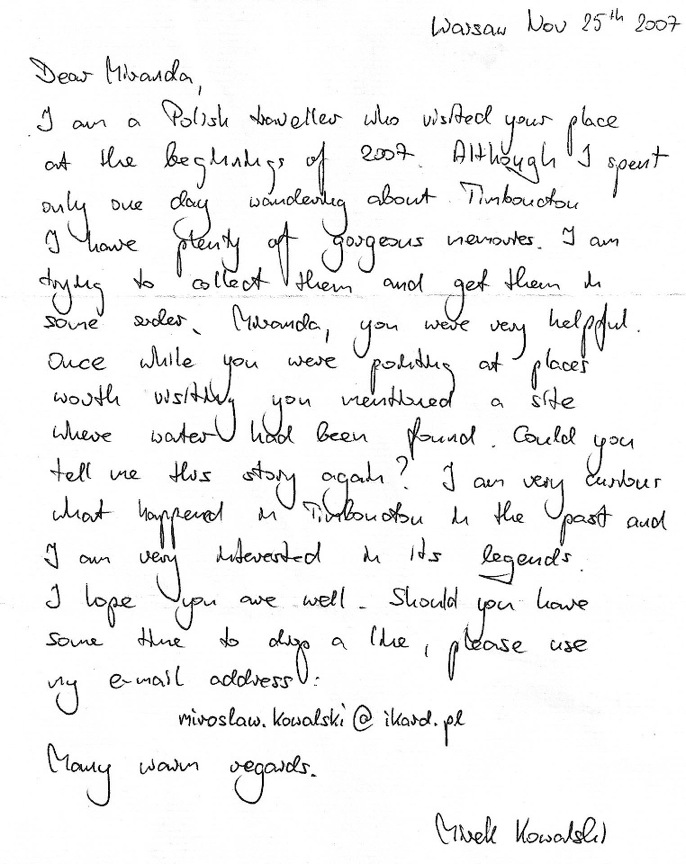 Warsaw Nov 25th 2007
Dear Miranda,
I am a Polish traveller who visited your place
at the beginnings of 2007. Although I spent
only one day wandering about Timbouctou
I have plenty of gorgeous memories. I am
trying to collect them and get them in
some order. Miranda, you were very helpful.
Once while you were pointing at places
worth visiting you mentioned a site
where water had been found. Could you
tell me this story again? I am very curious
what happened in Timbouctou in the past and
I am very interested in its legends.
I hope you are well. Should you have
some time to drop a line, please use
my e-mail address:
miroslaw.kowalski@ikard.pl
Many warm regards.
Mirek Kowalski